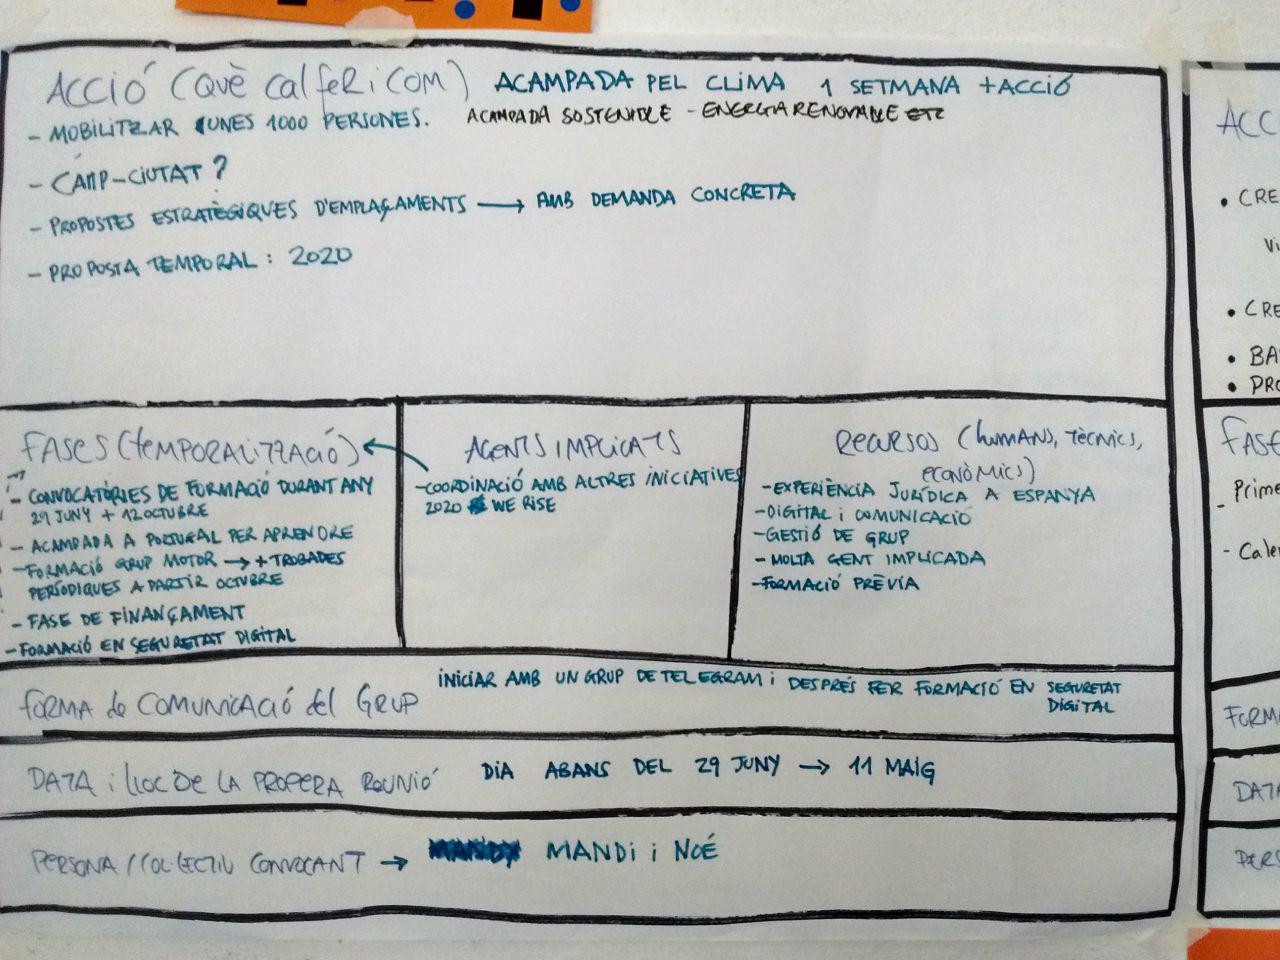 ACCIÓ (QUÈ CAL FER I COM) ACAMPADA PEL CLIMA 1 SETMANA + ACCIÓ
- MOBILITZAR UNES 1000 PERSONES. ACAMPADA SOSTENIBLE - ENERGIA RENOVABLE ETC
- CAMP-CIUTAT?
- PROPOSTES ESTRATÈGIQUES D'EMPLAÇAMENTS → AMB DEMANDA CONCRETA
- PROPOSTA TEMPORAL: 2020
FASES (TEMPORALITZACIÓ)
- CONVOCATÒRIES DE FORMACIÓ DURANT ANY
29 JUNY + 12 OCTUBRE
- ACAMPADA A PORTUGAL PER APRENDRE
- FORMACIÓ GRUP MOTOR → + TROBADES
PERÍODIQUES A PARTIR OCTUBRE
- FASE DE FINANÇAMENT
- FORMACIÓ EN SEGURETAT DIGITAL
AGENTS IMPLICATS
- COORDINACIÓ AMB ALTRES INICIATIVES
2020 WE RISE
RECURSOS (HUMANS, TÈCNICS,
ECONÒMICS)
- EXPERIÈNCIA JURÍDICA A ESPANYA
- DIGITAL I COMUNICACIÓ
- GESTIÓ DE GRUP
- MOLTA GENT IMPLICADA
- FORMACIÓ PRÈVIA
FORMA de COMUNICACIÓ del GRUP INICIAR AMB UN GRUP DE TELEGRAM I DESPRÉS FER FORMACIÓ EN SEGURETAT
DIGITAL
DATA i lloc DE LA PROPERA REUNIÓ DIA ABANS DEL 29 JUNY → 11 MAIG
PERSONA/COL·LECTIU CONVOCANT → MANDY MANDI I NOÉ
ACC
• CRE
Vi
• CRE
• BA
• PRO
FASE
Prime
-
- Cale
FORMA
DATA
PERS